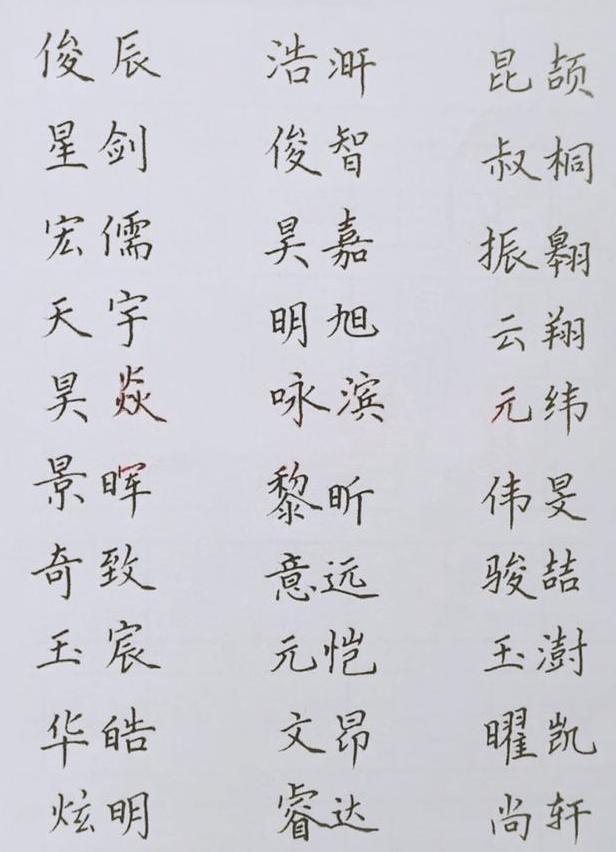 俊辰 浩汧 昆颉
星剑 俊智 叔桐
宏儒 昊嘉 振翱
天宇 明旭 云翔
昊焱 咏滨 元纬
景晖 黎昕 伟旻
奇致 意远 骏喆
玉宸 元恺 玉澍
华皓 文昂 曜凯
炫明 睿达 尚轩